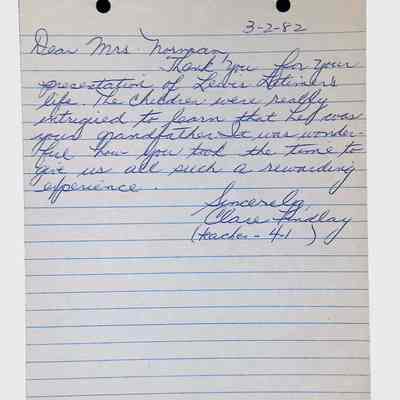 3-2-82
Dear Mrs. Norman,
Thank you for your
presentation of Lewis Latimer's
life. The children were really
intrigued to learn that he was
your grandfather. It was wonder-
ful how you took the time to
give us all such a rewarding
experience.
Sincerely,
Clare Findlay
(teacher - 4-1)